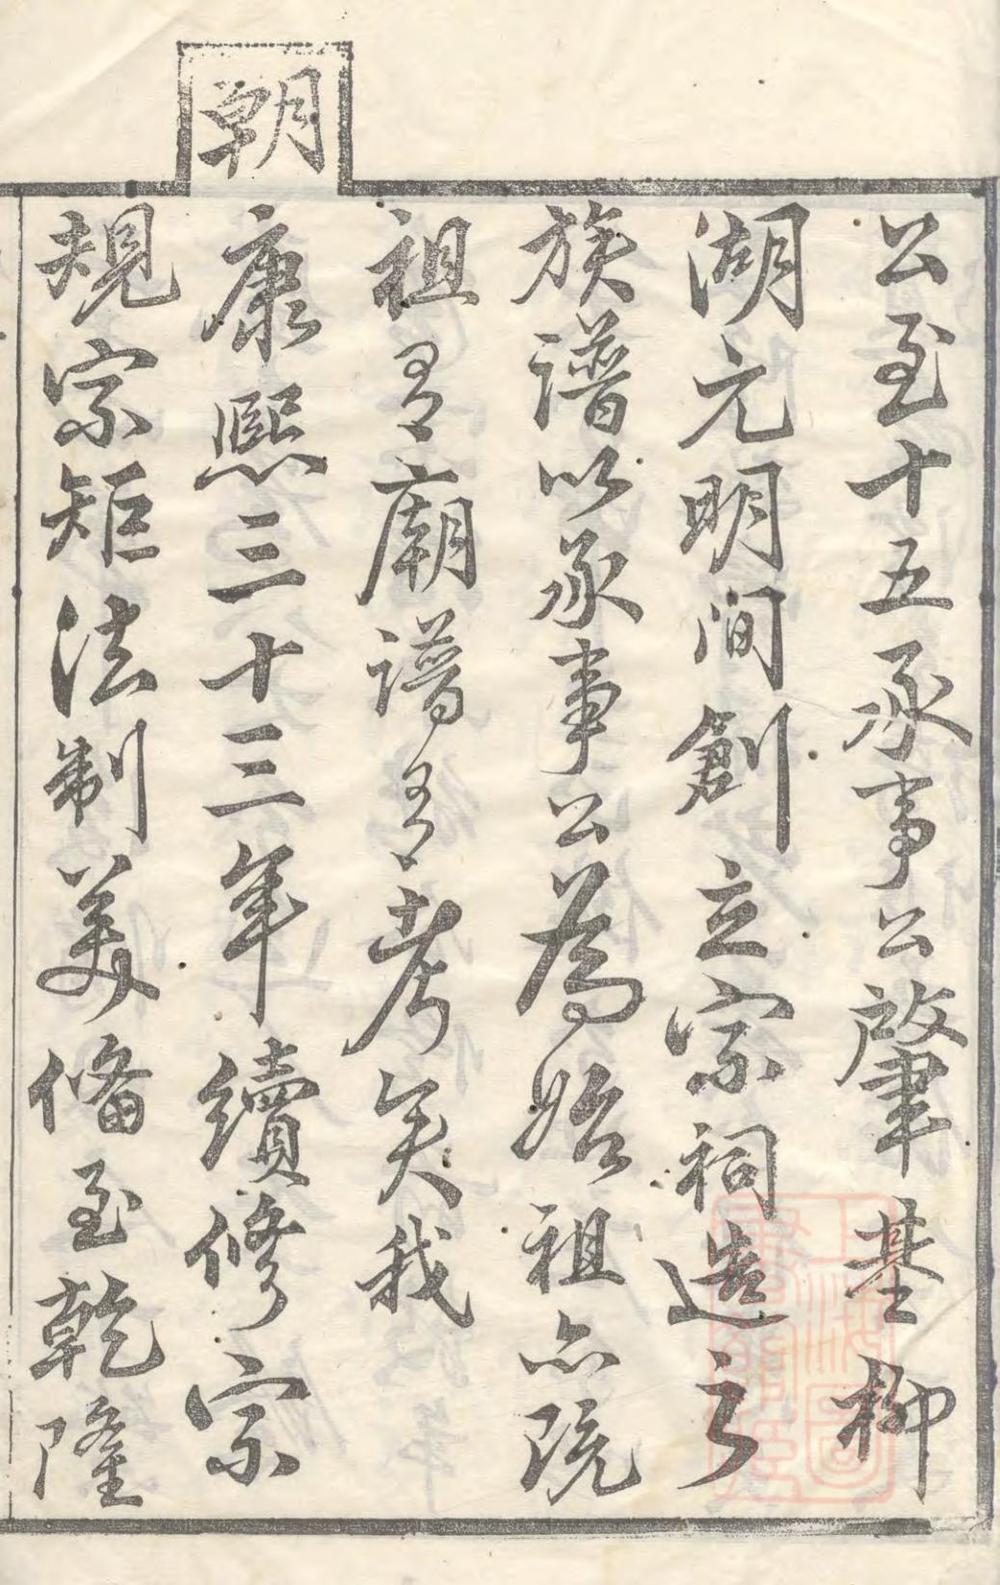 公至十五承事公肇基柳
湖元明間創立宗祠造
族譜以承事公為始祖亦既
祖有廟譜有考矣我
朝康熙三十三年續修宗
規宗矩法制美備至乾隆